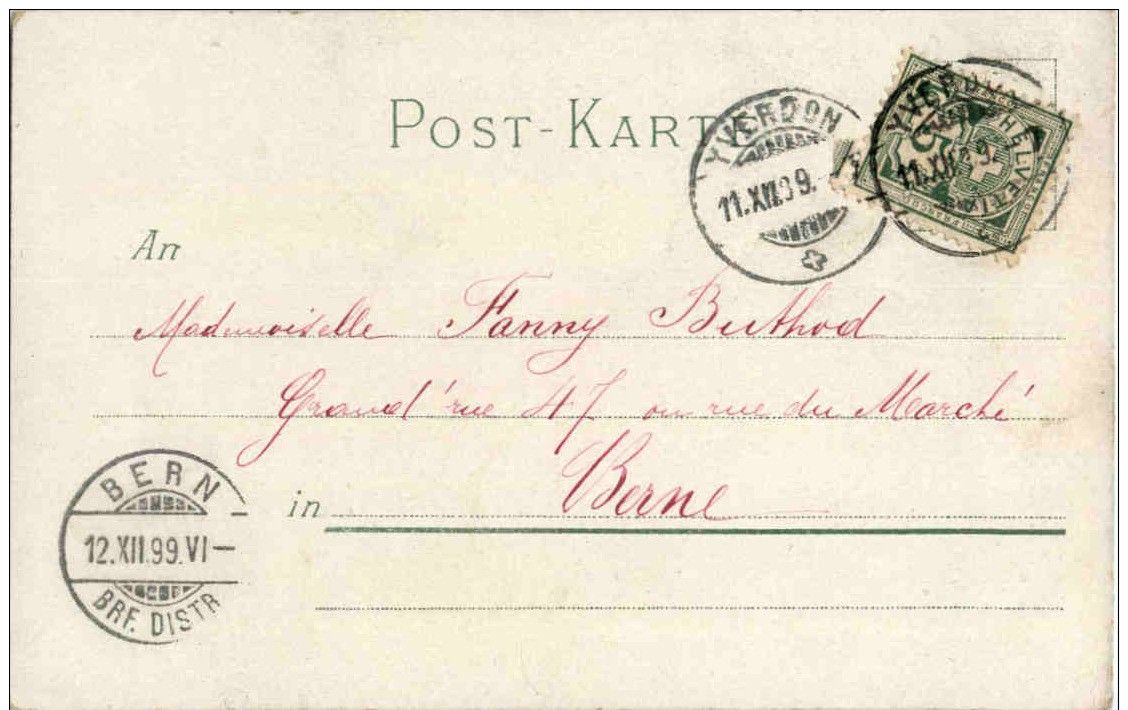 POST-KARTE
YVERDON
11.XII.99.
YVERDON
11.XII.99.
HELVETIA
5
An
Mademoiselle Fanny Buthod
Grand'rue 47 ou rue du Marché
in Berne
BERN
12.XII.99.VI—
BRF. DISTR